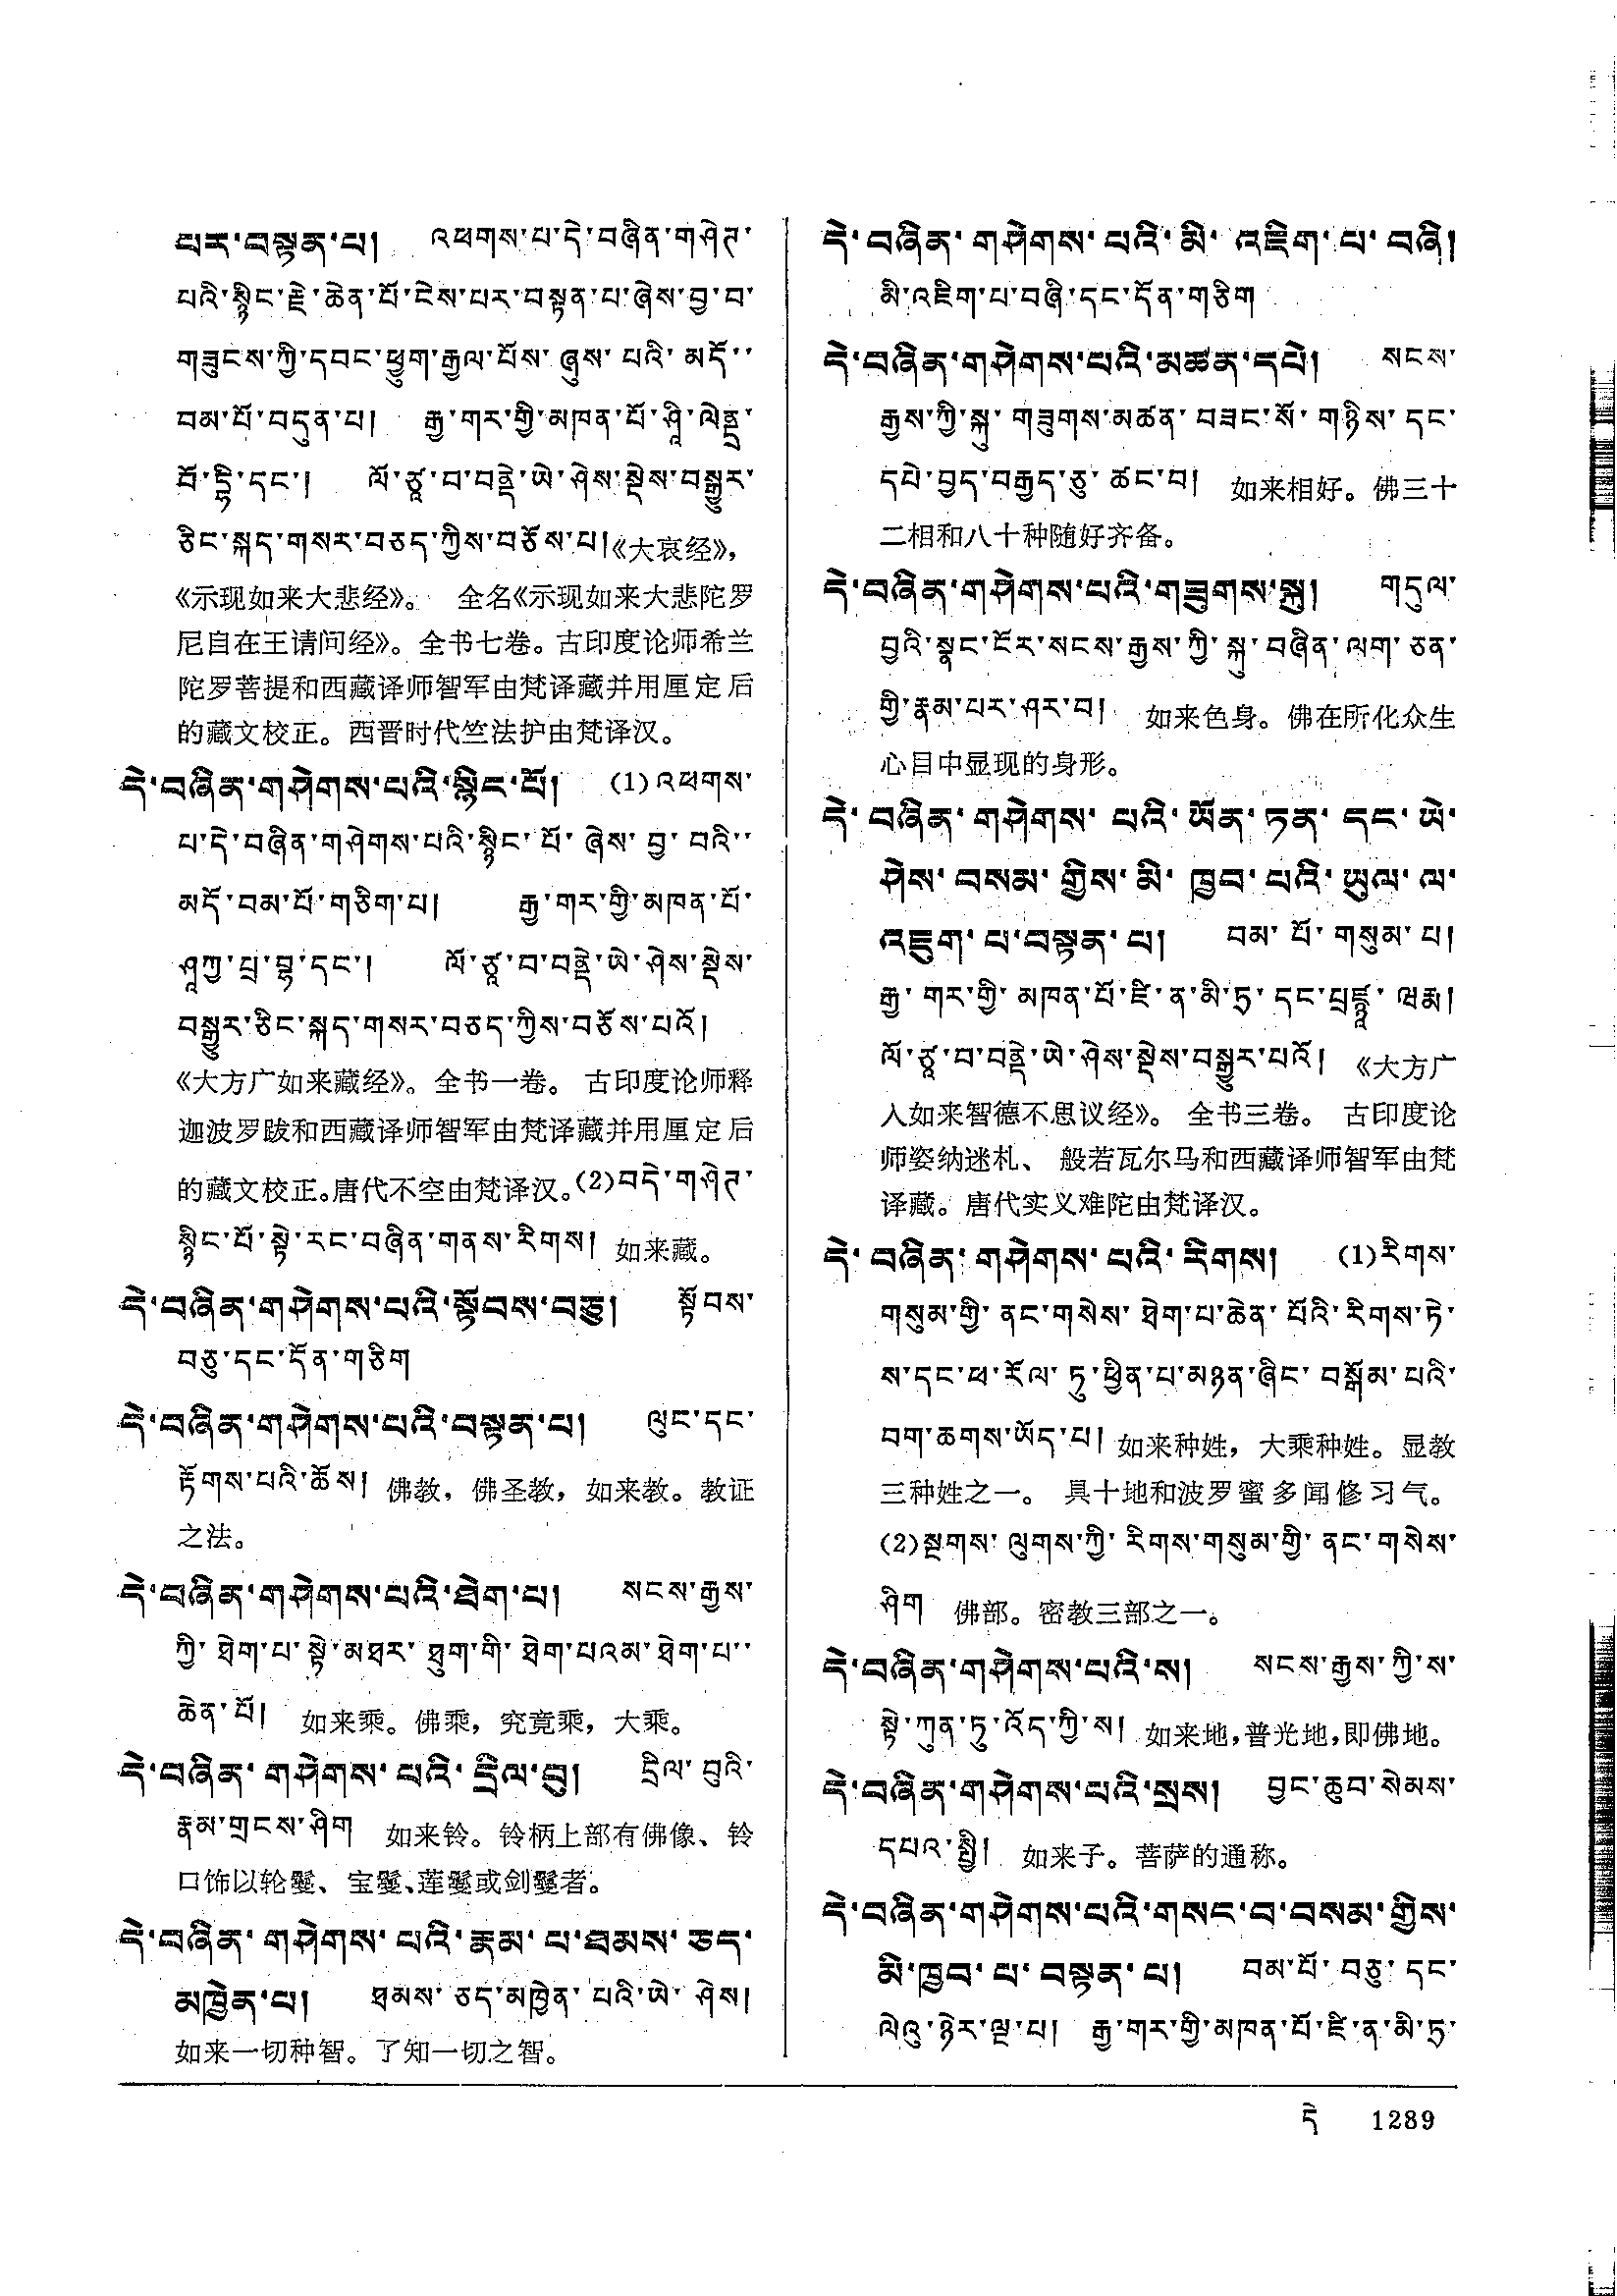 པར་བསྟན་པ། འཕགས་པ་དེ་བཞིན་གཤེཊ་
པའི་སྙིང་རྗེ་ཆེན་པོ་ངེས་པར་བསྟན་པ་ཞེས་བྱ་བ་
གཟུངས་ཀྱི་དབང་ཕྱུག་རྒྱལ་པོས་ཞུས་པའི་མདོ་་
བམ་པོ་བདུན་པ། རྒྱ་གར་གྱི་མཁན་པོ་ཤཱི་ལེནྡྲ་
བོ་དྷི་དང་། ལོ་ཙཱ་བ་བནྡེ་ཡེ་ཤེས་སྡེས་བསྒྱུར་
ཅིང་སྐད་གསར་བཅད་ཀྱིས་བཅོས་པ།《大哀经》，
《示现如来大悲经》。 全名《示现如来大悲陀罗
尼自在王请问经》。全书七卷。古印度论师希兰
陀罗菩提和西藏译师智军由梵译藏并用厘定后
的藏文校正。西晋时代竺法护由梵译汉。
དེ་བཞིན་གཤེགས་པའི་སྙིང་པོ། (1)འཕགས་
པ་དེ་བཞིན་གཤེགས་པའི་སྙིང་པོ་ཞེས་བྱ་བའི་་
མདོ་བམ་པོ་གཅིག་པ། རྒྱ་གར་གྱི་མཁན་པོ་
ཤཱཀྱ་པྲ་བྷ་དང་། ལོ་ཙཱ་བ་བནྡེ་ཡེ་ཤེས་སྡེས་
བསྒྱུར་ཅིང་སྐད་གསར་བཅད་ཀྱིས་བཅོས་པའོ།
《大方广如来藏经》。全书一卷。 古印度论师释
迦波罗跋和西藏译师智军由梵译藏并用厘定后
的藏文校正。唐代不空由梵译汉。(2)བདེ་གཤེཊ་
སྙིང་པོ་སྟེ་རང་བཞིན་གནས་རིགས། 如来藏。
དེ་བཞིན་གཤེགས་པའི་སྟོབས་བཅུ། སྟོབས་
བཅུ་དང་དོན་གཅིག
དེ་བཞིན་གཤེགས་པའི་བསྟན་པ། ལུང་དང་
རྟོགས་པའི་ཆོས། 佛教，佛圣教，如来教。教证
之法。
དེ་བཞིན་གཤེགས་པའི་ཐེག་པ། སངས་རྒྱས་
ཀྱི་ཐེག་པ་སྟེ་མཐར་ཐུག་གི་ཐེག་པའམ་ཐེག་པ་་
ཆེན་པོ། 如来乘。佛乘，究竟乘，大乘。
དེ་བཞིན་གཤེགས་པའི་དྲིལ་བུ། དྲིལ་བུའི་
རྣམ་གྲངས་ཤིག 如来铃。铃柄上部有佛像、铃
口饰以轮鬘、宝鬘、莲鬘或剑鬘者。
དེ་བཞིན་གཤེགས་པའི་རྣམ་པ་ཐམས་ཅད་
མཁྱེན་པ། ཐམས་ཅད་མཁྱེན་པའི་ཡེ་ཤེས།
如来一切种智。了知一切之智。
དེ་བཞིན་གཤེགས་པའི་མི་འཇིག་པ་བཞི།
མི་འཇིག་པ་བཞི་དང་དོན་གཅིག
དེ་བཞིན་གཤེགས་པའི་མཚན་དཔེ། སངས་
རྒྱས་ཀྱི་སྐུ་གཟུགས་མཚན་བཟང་སོ་གཉིས་དང་
དཔེ་བྱད་བརྒྱད་ཅུ་ཚང་བ། 如来相好。佛三十
二相和八十种随好齐备。
དེ་བཞིན་གཤེགས་པའི་གཟུགས་སྐུ། གདུལ་
བྱའི་སྣང་ངོར་སངས་རྒྱས་ཀྱི་སྐུ་བཞིན་ལག་ཅན་
གྱི་རྣམ་པར་ཤར་བ། 如来色身。佛在所化众生
心目中显现的身形。
དེ་བཞིན་གཤེགས་པའི་ཡོན་ཏན་དང་ཡེ་
ཤེས་བསམ་གྱིས་མི་ཁྱབ་པའི་ཡུལ་ལ་
འཇུག་པ་བསྟན་པ། བམ་པོ་གསུམ་པ།
རྒྱ་གར་གྱི་མཁན་པོ་ཛི་ན་མི་ཏྲ་དང་པྲཛྙཱ་ཝརྨ།
ལོ་ཙཱ་བ་བནྡེ་ཡེ་ཤེས་སྡེས་བསྒྱུར་པའོ། 《大方广
入如来智德不思议经》。 全书三卷。 古印度论
师姿纳迷札、 般若瓦尔马和西藏译师智军由梵
译藏。唐代实义难陀由梵译汉。
དེ་བཞིན་གཤེགས་པའི་རིགས། (1)རིགས་
གསུམ་གྱི་ནང་གསེས་ཐེག་པ་ཆེན་པོའི་རིགས་ཏེ་
ས་དང་ཕ་རོལ་ཏུ་ཕྱིན་པ་མཉན་ཞིང་བསྒོམ་པའི་
བག་ཆགས་ཡོད་པ། 如来种姓，大乘种姓。显教
三种姓之一。 具十地和波罗蜜多闻修习气。
(2)སྔགས་ལུགས་ཀྱི་རིགས་གསུམ་གྱི་ནང་གསེས་
ཤིག 佛部。密教三部之一。
དེ་བཞིན་གཤེགས་པའི་ས། སངས་རྒྱས་ཀྱི་ས་
སྟེ་ཀུན་ཏུ་འོད་ཀྱི་ས། 如来地，普光地，即佛地。
དེ་བཞིན་གཤེགས་པའི་སྲས། བྱང་ཆུབ་སེམས་
དཔའ་སྤྱི། 如来子。菩萨的通称。
དེ་བཞིན་གཤེགས་པའི་གསང་བ་བསམ་གྱིས་
མི་ཁྱབ་པ་བསྟན་པ། བམ་པོ་བཅུ་དང་
ལེའུ་ཉེར་ལྔ་པ། རྒྱ་གར་གྱི་མཁན་པོ་ཛི་ན་མི་ཏྲ་
དེ 1289